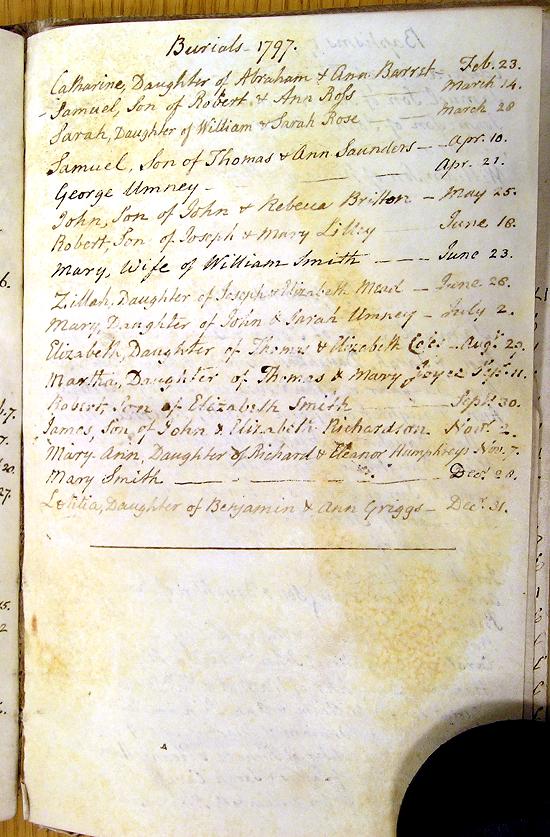 Burials 1797.
Catharine, Daughter of Abraham & Ann Barret Feb. 23.
Samuel, Son of Robert & Ann Ross March 14.
Sarah, Daughter of William & Sarah Rose March 28
Samuel, Son of Thomas & Ann Saunders - Apr. 10.
George Umney - Apr. 21.
John, Son of John & Rebecca Britton - May 25.
Robert, Son of Joseph & Mary Lilley June 18.
Mary, Wife of William Smith - June 23.
Zillah, Daughter of Joseph & Elizabeth Mead - June 28.
Mary, Daughter of John & Sarah Umney - July 2.
Elizabeth, Daughter of Thomas & Elizabeth Augt. 29.
Martha, Daughter of Thomas & Mary Joyce Sept. 11.
Robert, Son of Elizabeth Smith Sept. 30.
James, Son of John & Elizabeth Richardson Novr. 2.
Mary Ann, Daughter of Richard & Eleanor Humphreys Nov. 7.
Mary Smith Decr. 28.
Letitia, Daughter of Benjamin & Ann Griggs - Decr. 31.